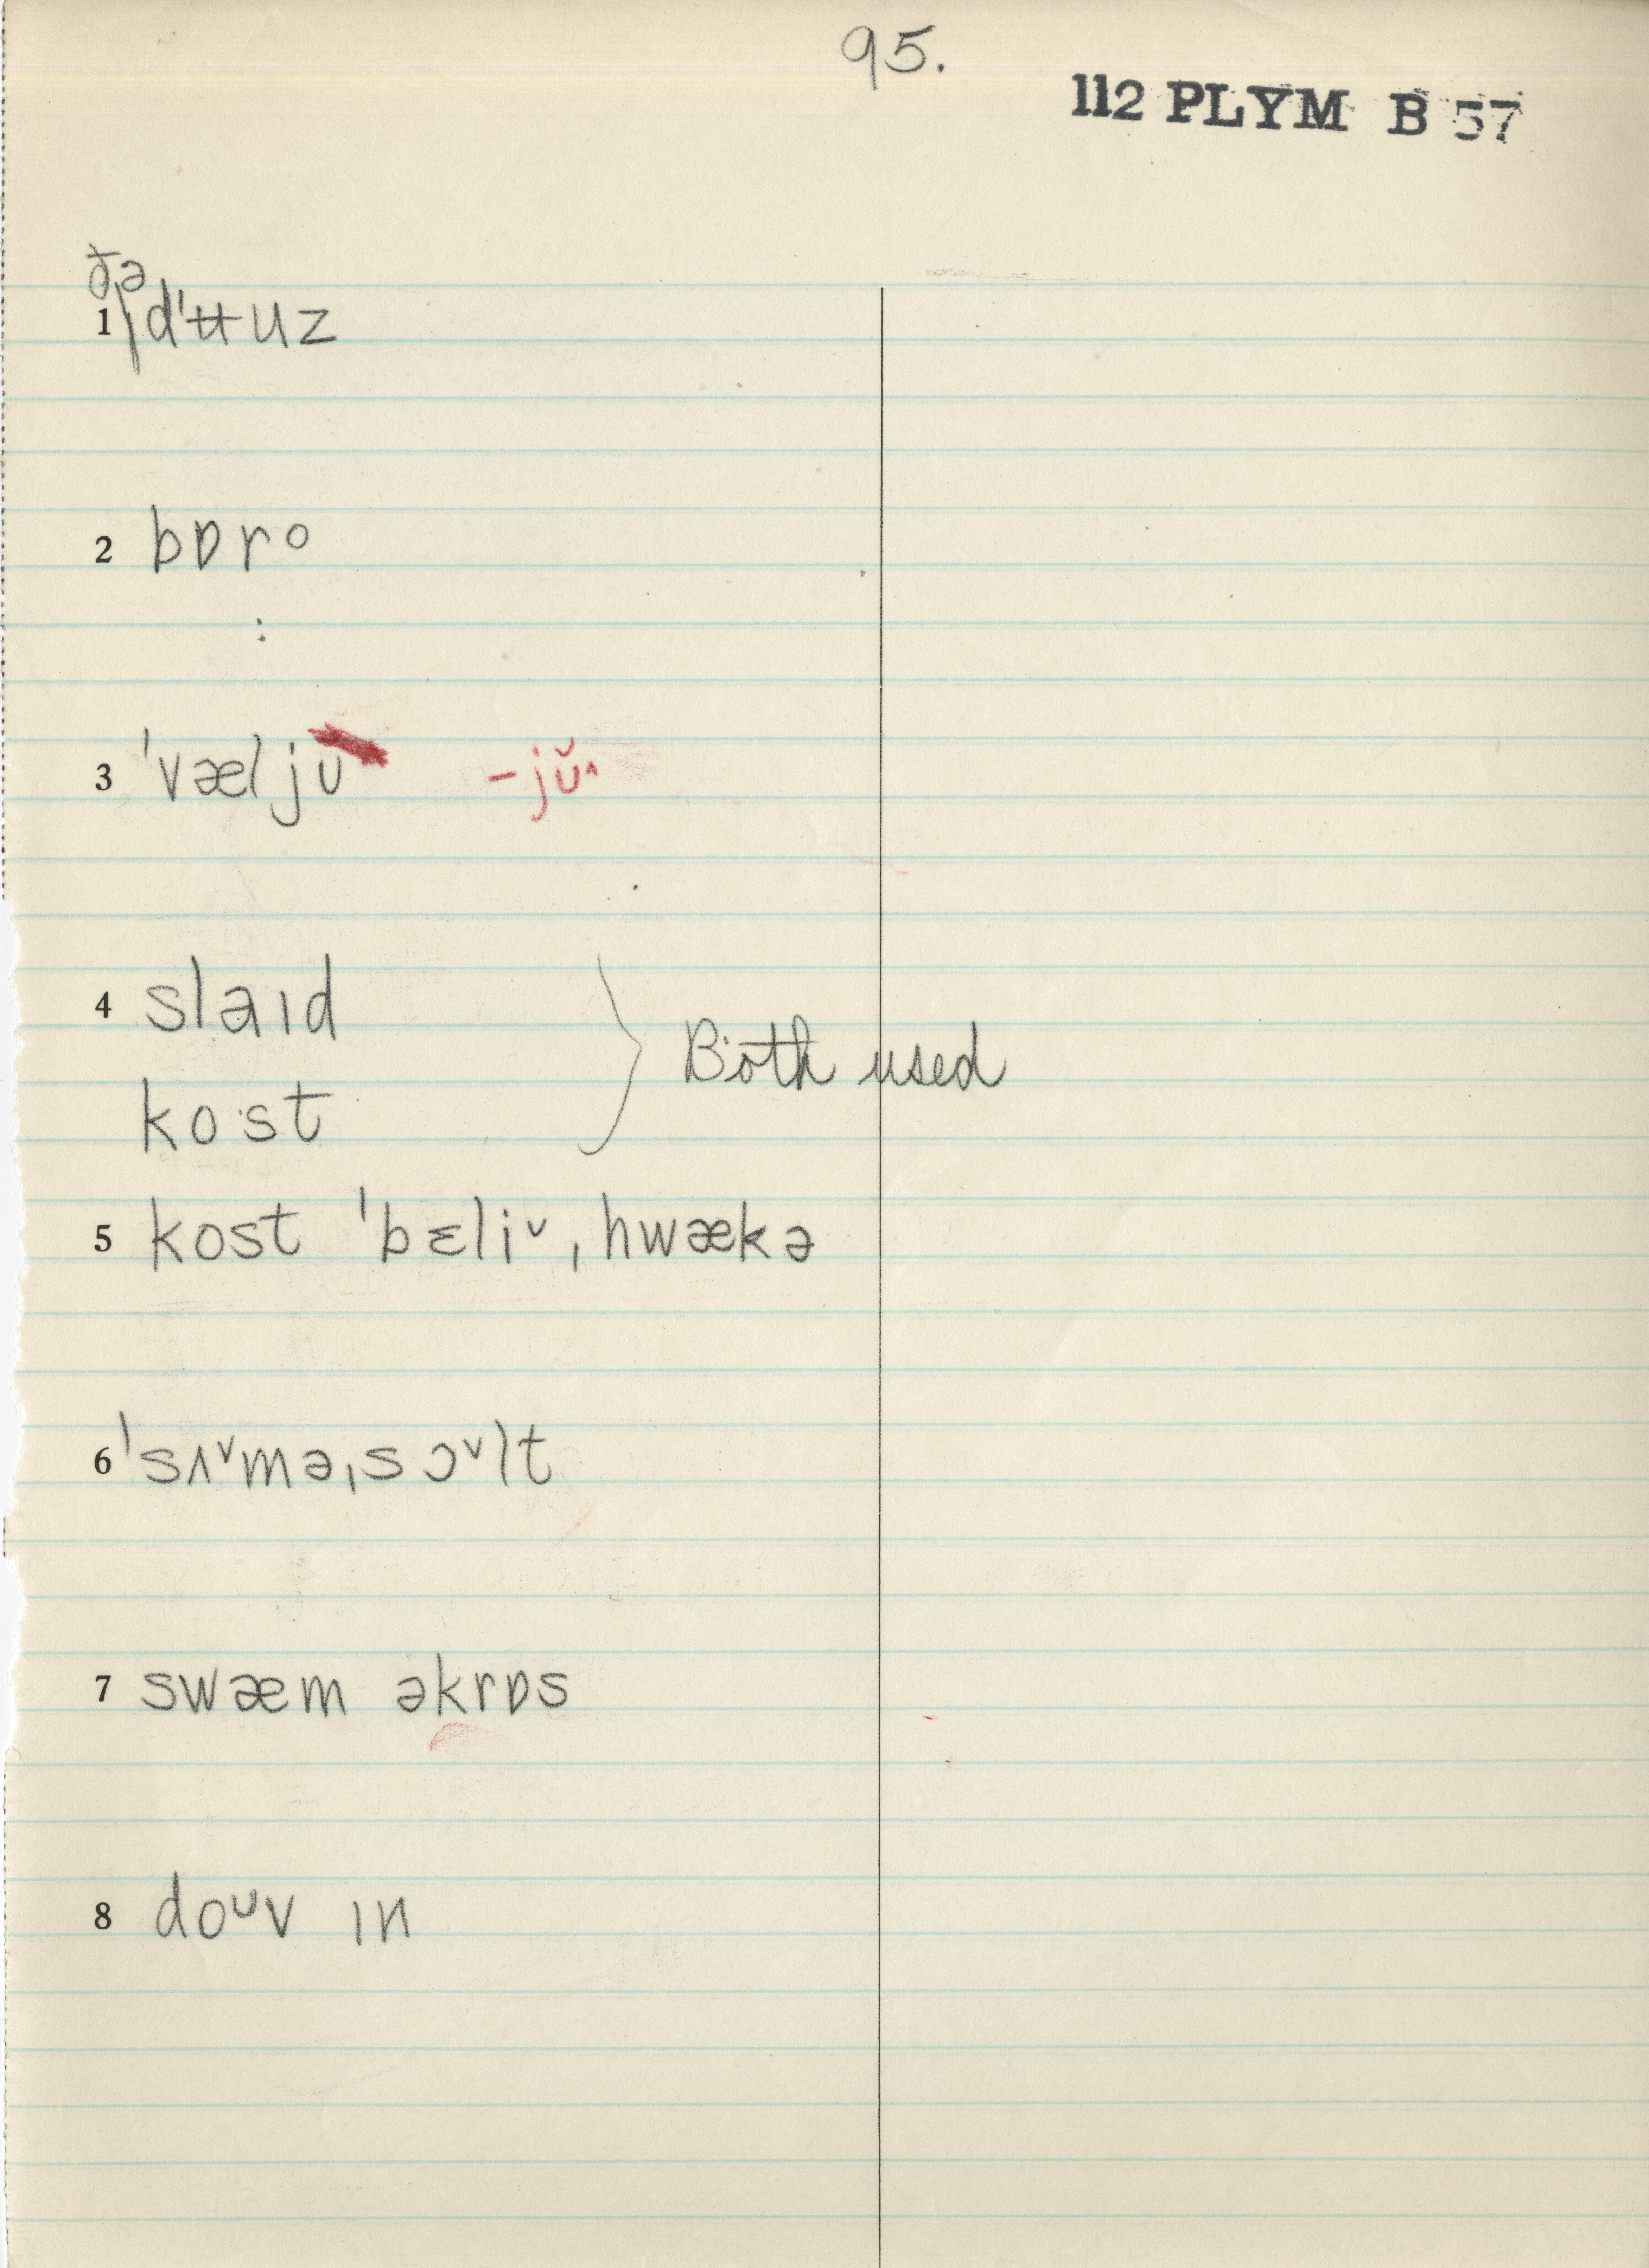 95.
112 PLYM B 57
ðə
1 dˈʉuz
2 bɒro
:
3 ˈvæljʊ -jŭ˄
4 slaɪd
} Both used
kost
5 kost ˈbɛli˅ˌhwækə
6 ˈsʌ˅məˌsɔ˅lt
7 swæm əkrɒs
8 doᴜv ɪn